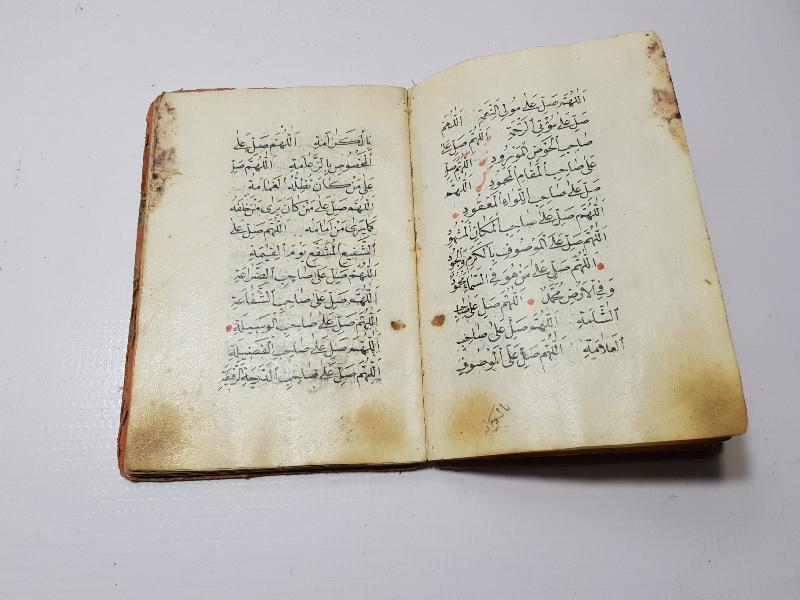 اللهم صل على مولى النعمة اللهم
صل على مؤتى الرحمة اللهم صل على
صاحب الحوض المورود اللهم صل
على صاحب المقام المحمود اللهم
صل على صاحب اللواء المعقود
اللهم صل على صاحب المكان المشهود
اللهم صل على الموصوف بالكرم والجود
اللهم صل على من هو في السماء محمود
وفي الأرض محمد اللهم صل على صاحب
الشامة اللهم صل على صاحب
العلامة اللهم صل على الموصوف
بالكرامة
بالكرامة اللهم صل على
المخصوص بالزعامة اللهم صل
على من كان تظله الغمامة
اللهم صل على من كان يرى من خلفه
كما يرى من أمامه اللهم صل على
الشفيع المشفع يوم القيمة
اللهم صل على صاحب الضراعة
اللهم صل على صاحب الشفاعة
اللهم صل على صاحب الوسيلة
اللهم صل على صاحب الفضيلة
اللهم صل على صاحب الدرجة الرفيعة